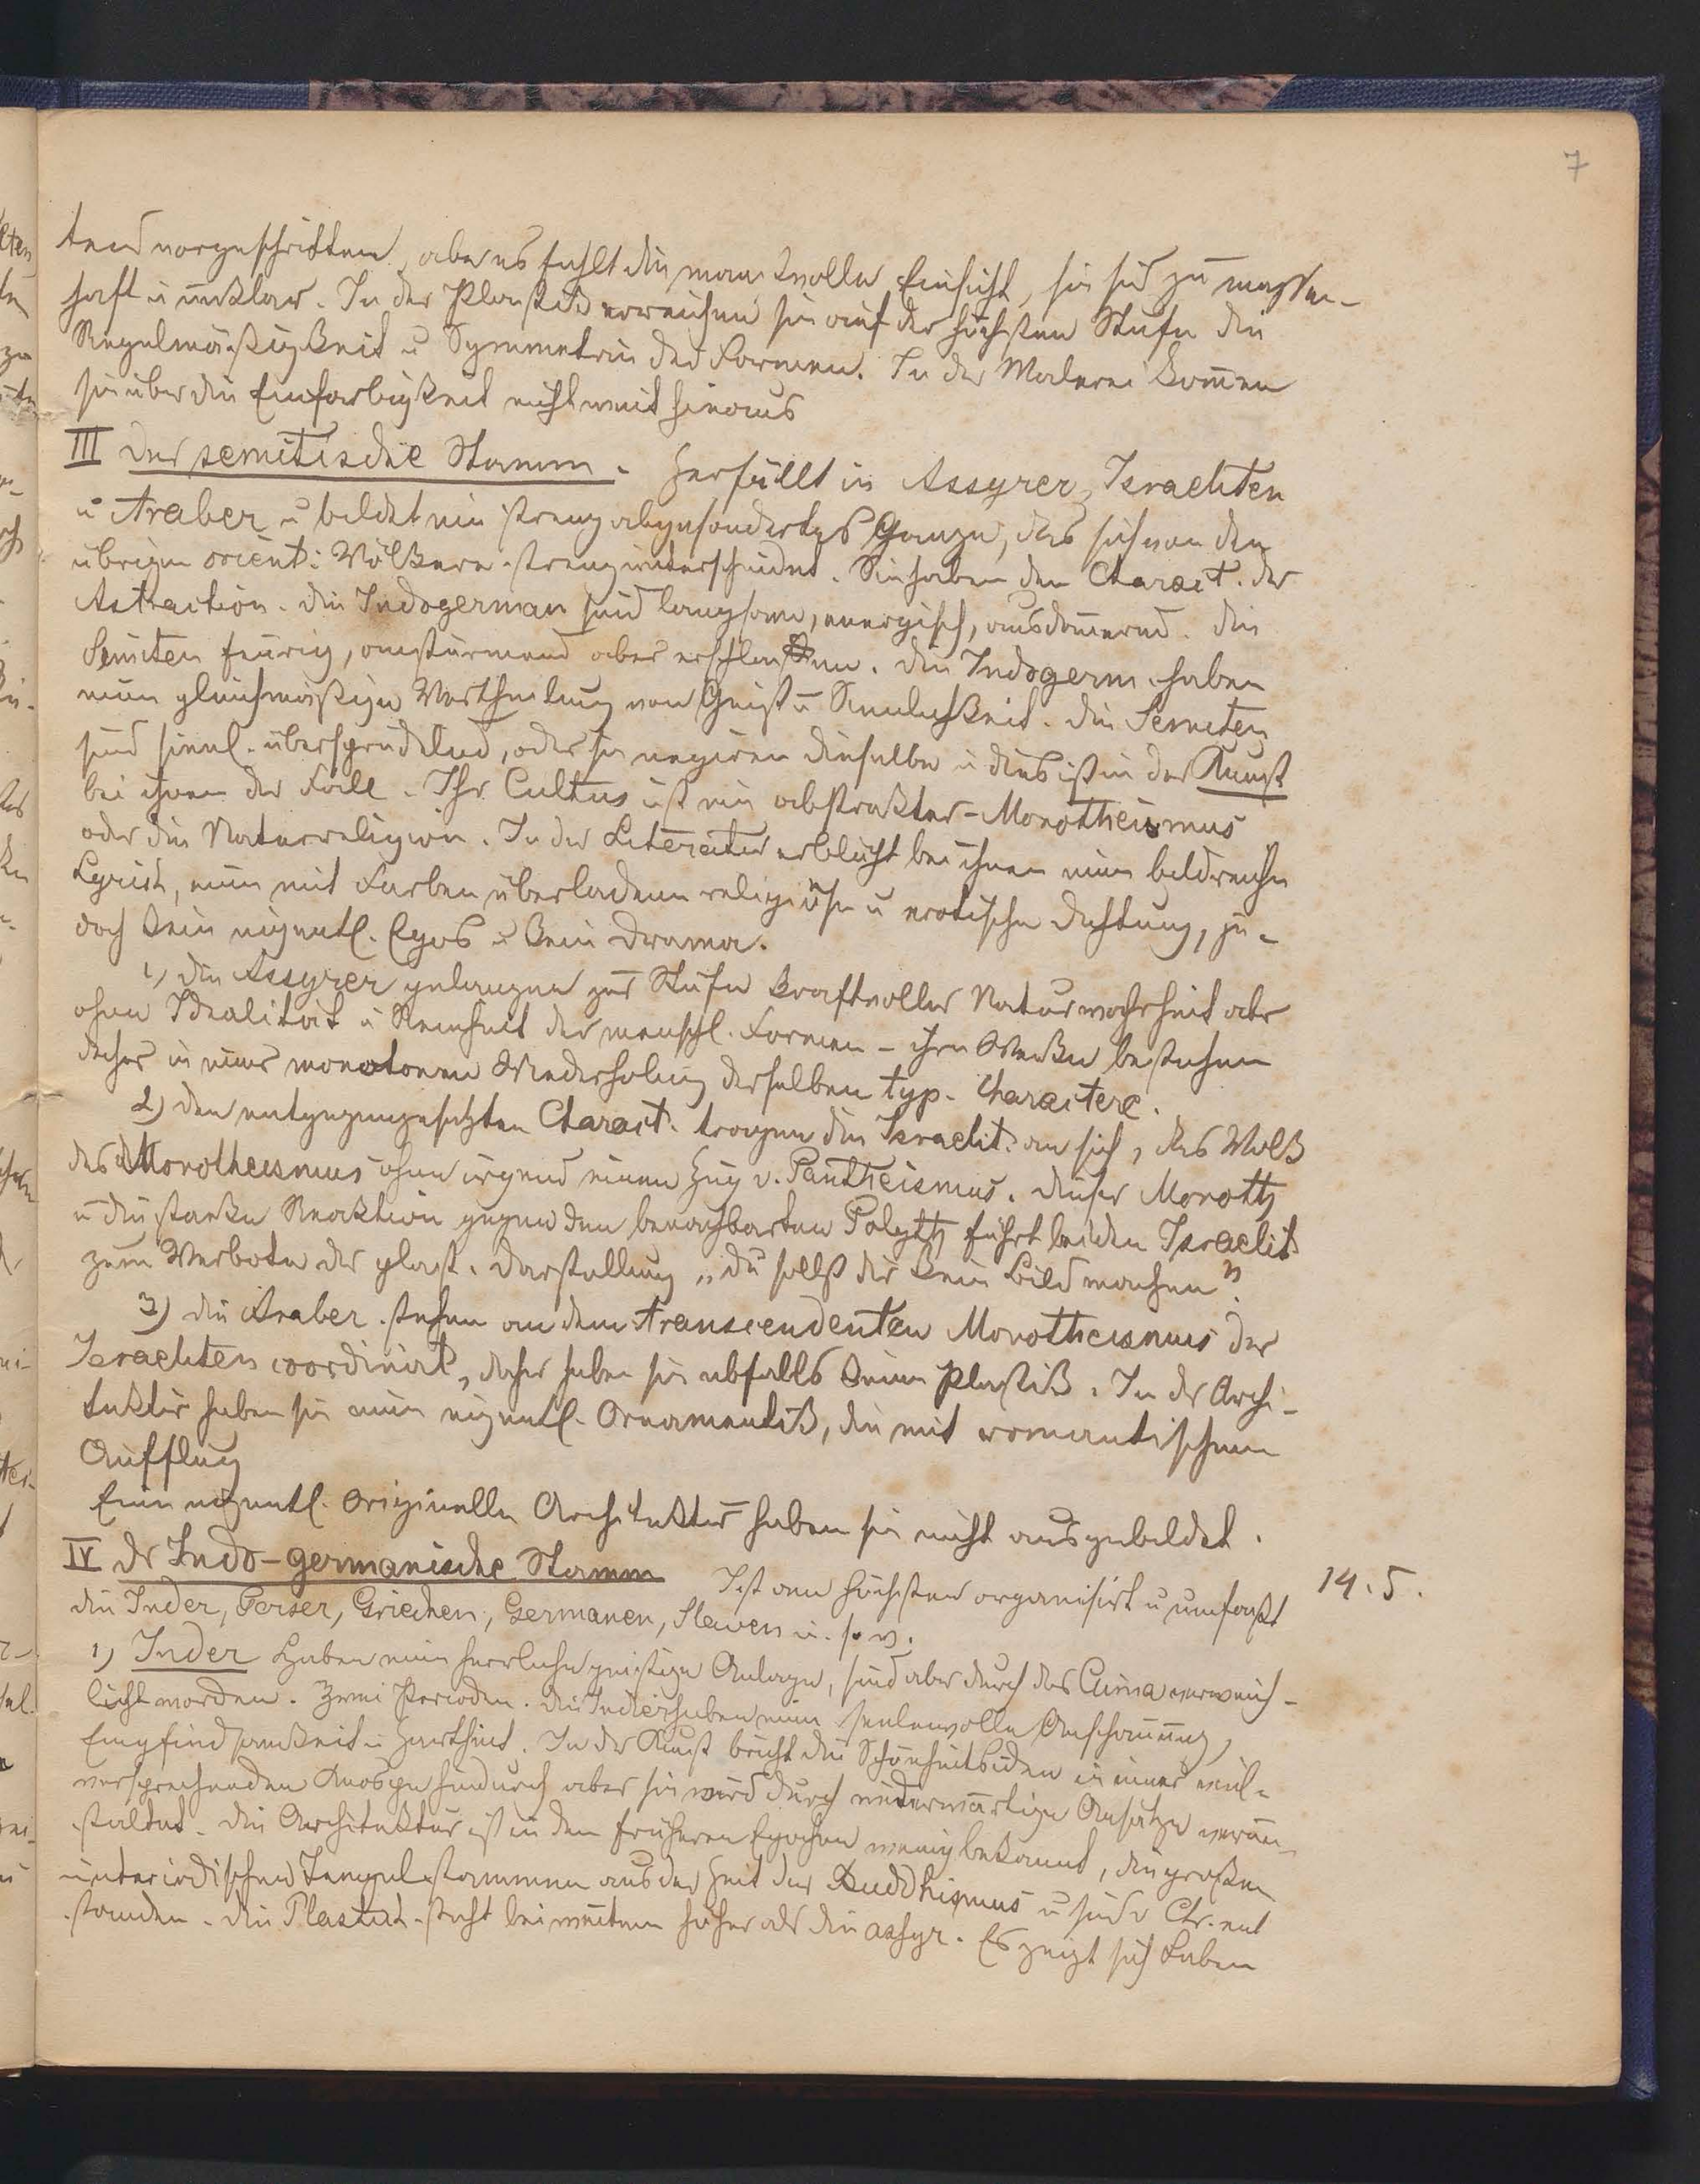 7
tend vorgeschritten, aber es fehlt die maaßvolle Einsicht, sie sind zu massen-
haft u unklar. In der Plastik erreichen sie auf der höchsten Stufe die
Regelmäßigkeit u Symmetrie der Formen. In der Malerei kommen
sie über die Einfarbigkeit nicht weit hinaus
III Der semitische Stamm. Zerfällt in Assyrer, Israeliten
u Araber u bildet ein streng abgesondertes Ganze, das sich von den
übrigen orient. Völkern streng unterscheidet. Sie haben den Charact. der
Astraction. Die Indogerman sind langsam, energisch, ausdauernd. Die
Semiten feurig, anstürmend aber erschlaffen. Die Indogerm. haben
eine gleichmäßige Vertheilung von Geist u Sinnlichkeit. Die Semiten
sind sinnl. übersprudelnd, oder sie negiren dieselbe u dies ist in der Kunst
bei ihnen der Fall. Ihr Cultus ist ein abstrakter Monotheismus
oder die Naturreligion. In der Literatur erblüht bei ihnen eine bildreiche
Lyrik, eine mit Farben überladene religiöse u erotische Dichtung, je-
doch kein eigentl. Epos u kein Drama.
1) Die Assyrer gelangen zur Stufe kraftvoller Naturwahrheit aber
ohne Idealität u Reinheit der menschl. Formen – ihre Werke bestehen
daher in einer monotonen Wiederholung derselben typ. Charactere.
2) Den entgegengesetzten Charact. tragen die Israelit. an sich, das Volk
des Monotheismus ohne irgend einen Zug v. Pantheismus. Dieser Monoth
u die starke Reaktion gegen den benachbarten Polyth führt bei den Israelit
zum Verbote der plast. Darstellung „du sollst dir kein Bild machen".
3) Die Araber stehen an dem transcendenten Monotheismus der
Israeliten coordinirt, daher haben sie ebfalls keine Plastik. In der Archi-
tektur haben sie eine eigentl. Ornamentik, die mit romantischem
Aufflug
Eine eigentl. originelle Architektur haben sie nicht ausgebildet.
IV Der Indo-germanische Stamm Ist am höchsten organisirt u umfaßt
14. 5.
die Inder, Perser, Griechen, Germanen, Slaven u. s. w.
1) Inder Haben eine herrliche geistige Anlage, sind aber durch das Clima verweich-
licht worden. Zwei Perioden. Die Inder haben eine seelenvolle Anschauung,
Empfindsamkeit u Zartheit. In der Kunst bricht die Schönheitsidee in einer viel-
versprechenden Knospe hindurch aber sie wird durch widerwärtige Ansätze verun-
staltet. Die Architektur ist in den früheren Epochen wenig bekannt, die großen
unterirdischen Tempel stammen aus der Zeit des Buddhismus u sind v Chr. ent
standen. Die Plastik steht bei weitem höher als die assyr. Es zeigt sich Leben